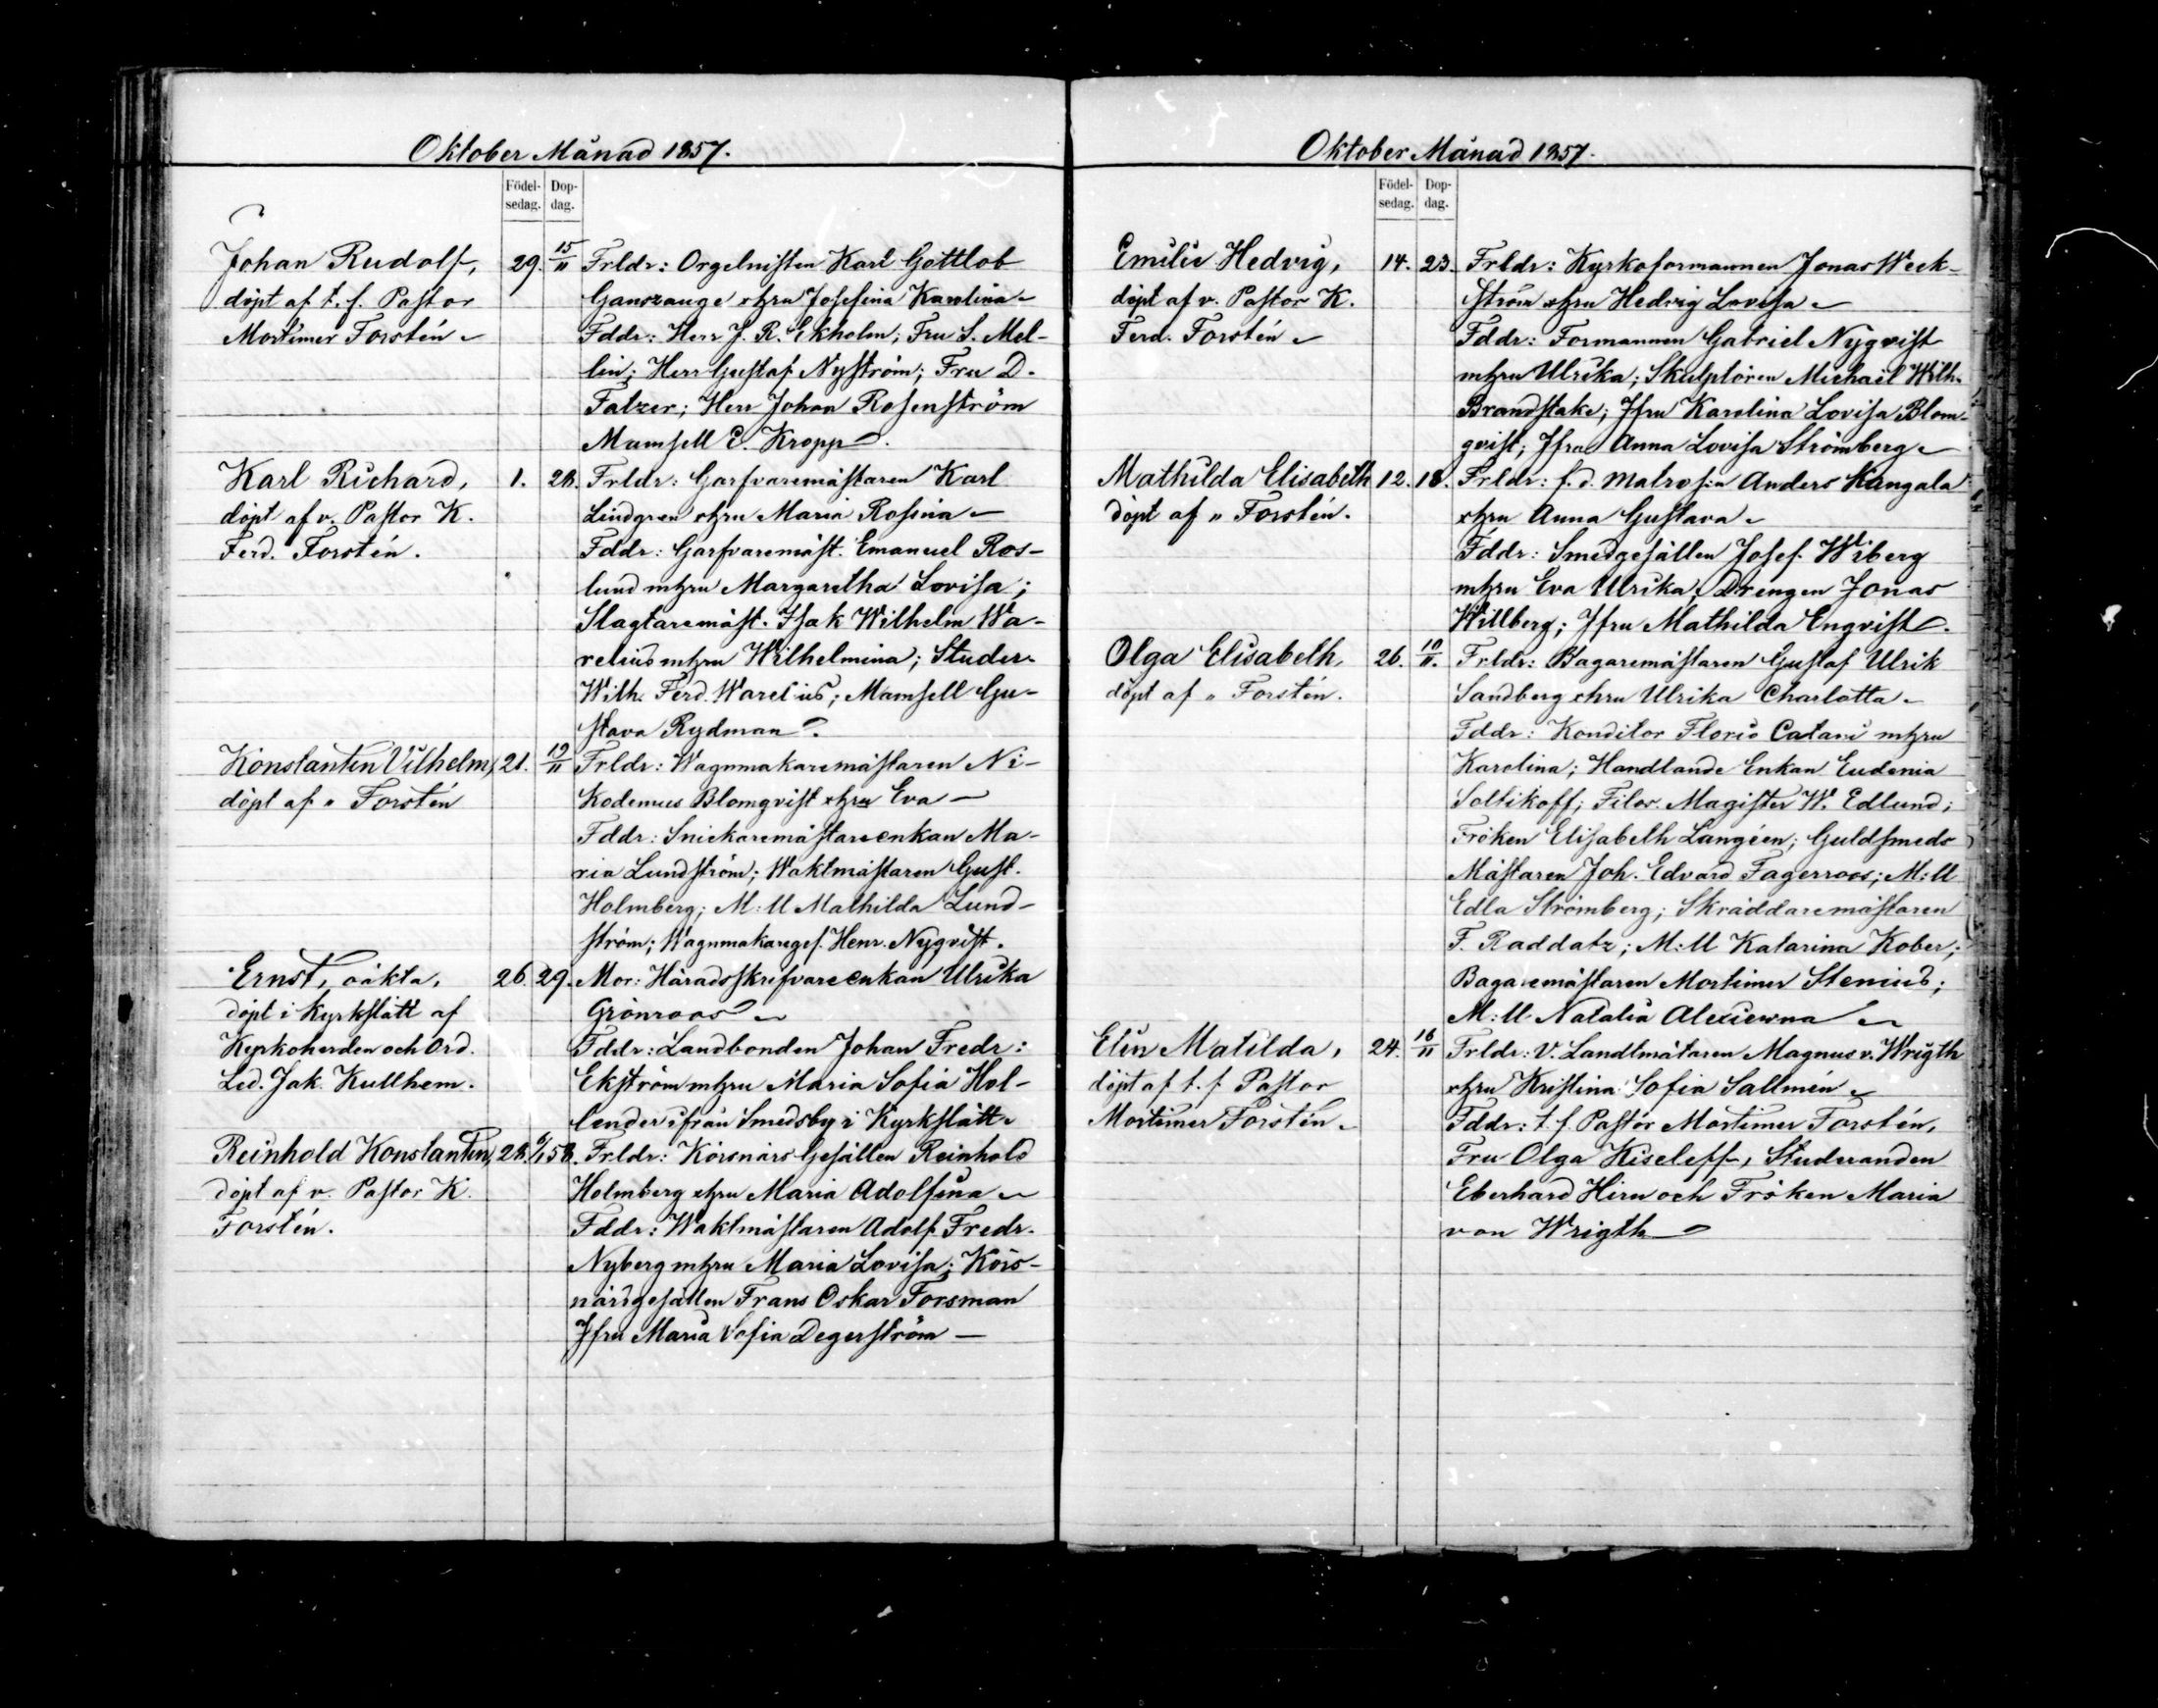 Oktober Månad 1857.
Födel- Dop-
sedag. dag.
Johan Rudolf, 29. 15/11 Frldr: Orgelnisten Karl Gottlob
döpt af t. f. Pastor Ganszauge o hru Josefina Karolina
Mortimer Forstén Fddr: Herr J. R. Ekholm; Fru S. Mel-
lin; Herr Gustaf Nyström; Fru D.
Fatzer; Herr Johan Rosenström
Mamsell E. Kropp.
Karl Richard, 1. 28. Frldr: Garfvaremästaren Karl
döpt af v. Pastor K. Lindgren o hru Maria Rosina
Ferd. Forstén. Fddr: Garfvaremäst. Emanuel Ros-
lund m hru Margaretha Lovisa;
Slagtaremäst. Isak Wilhelm Wa-
relius m hru Wilhelmina; Studer.
Wilh. Ferd. Warelius; Mamsell Gu-
stava Rydman.
Konstantin Vilhelm, 21. 19/11 Frldr: Wagnmakaremästaren Ni-
döpt af " Forstén kodemus Blomqvist o hru Eva
Fddr: Snickaremästareenkan Ma-
ria Lundström; Waktmästaren Gust.
Holmberg; M:ll Mathilda Lund-
ström; Wagnmakareges. Henr. Nyqvist.
Ernst, oäkta, 26. 29. Mor: Häradsskrifvareenkan Ulrika
döpt i Kyrkslätt af Grönroos
Kyrkoherden och Ord. Fddr: Landbonden Johan Fredr:
Led. Jak. Kullhem. Ekström m hru Maria Sofia Hol-
lender ifrån Smedsby i Kyrkslätt.
Reinhold Konstantin, 28. 6/1 58. Frldr: Körsnärs Gesällen Reinhold
döpt af v. Pastor K. Holmberg o hru Maria Adolfina
Forstén. Fddr: Waktmästaren Adolf Fredr.
Nyberg m hru Maria Lovisa; Körs-
närsgesällen Frans Oskar Forsman
Jfru Maria Sofia Degerström
Oktober Månad 1857.
Födel- Dop-
sedag. dag.
Emilie Hedvig, 14. 23. Frldr: Kyrkoformannen Jonas Weck-
döpt af v. Pastor K. ström o hru Hedvig Lovisa
Ferd. Forstén Fddr: Formannen Gabriel Nyqvist
m hru Ulrika; Skulptören Michaël Wilh.
Brandstake; Jfru Karolina Lovisa Blom-
qvist; Jfru Anna Lovisa Strömberg
Mathilda Elisabeth 12. 18. Frldr: f. d. Matrosen Anders Kangala
döpt af " Forstén. o hru Anna Gustava
Fddr: Smedgesällen Josef Wiberg
m hru Eva Ulrika; Drengen Jonas
Willberg; Jfru Mathilda Engvist.
Olga Elisabeth, 26. 10/11. Frldr: Bagaremästaren Gustaf Ulrik
döpt af " Forstén. Sandberg o hru Ulrika Charlotta
Fddr: Konditor Florio Catani m hru
Karolina; Handlande Enkan Eudenia
Soltikoff; Filos. Magister W. Edlund;
Fröken Elisabeth Langéen; Guldsmeds
Mästaren Joh. Edvard Fagerroos; M:ll
Edla Strömberg; Skräddaremästaren
F. Raddatz; M:ll Katarina Kober;
Bagaremästaren Mortimer Stenius;
M:ll Natalia Alexiewna
Elin Matilda, 24. 16/11 Frldr: V. Landtmätaren Magnus v. Wrigth
döpt af t. f. Pastor o hru Kristina Sofia Sallmén
Mortimer Forstén. Fddr: t. f. Pastor Mortimer Forstén,
Fru Olga Kiseleff, Studeranden
Eberhard Hirn och Fröken Maria
von Wrigth